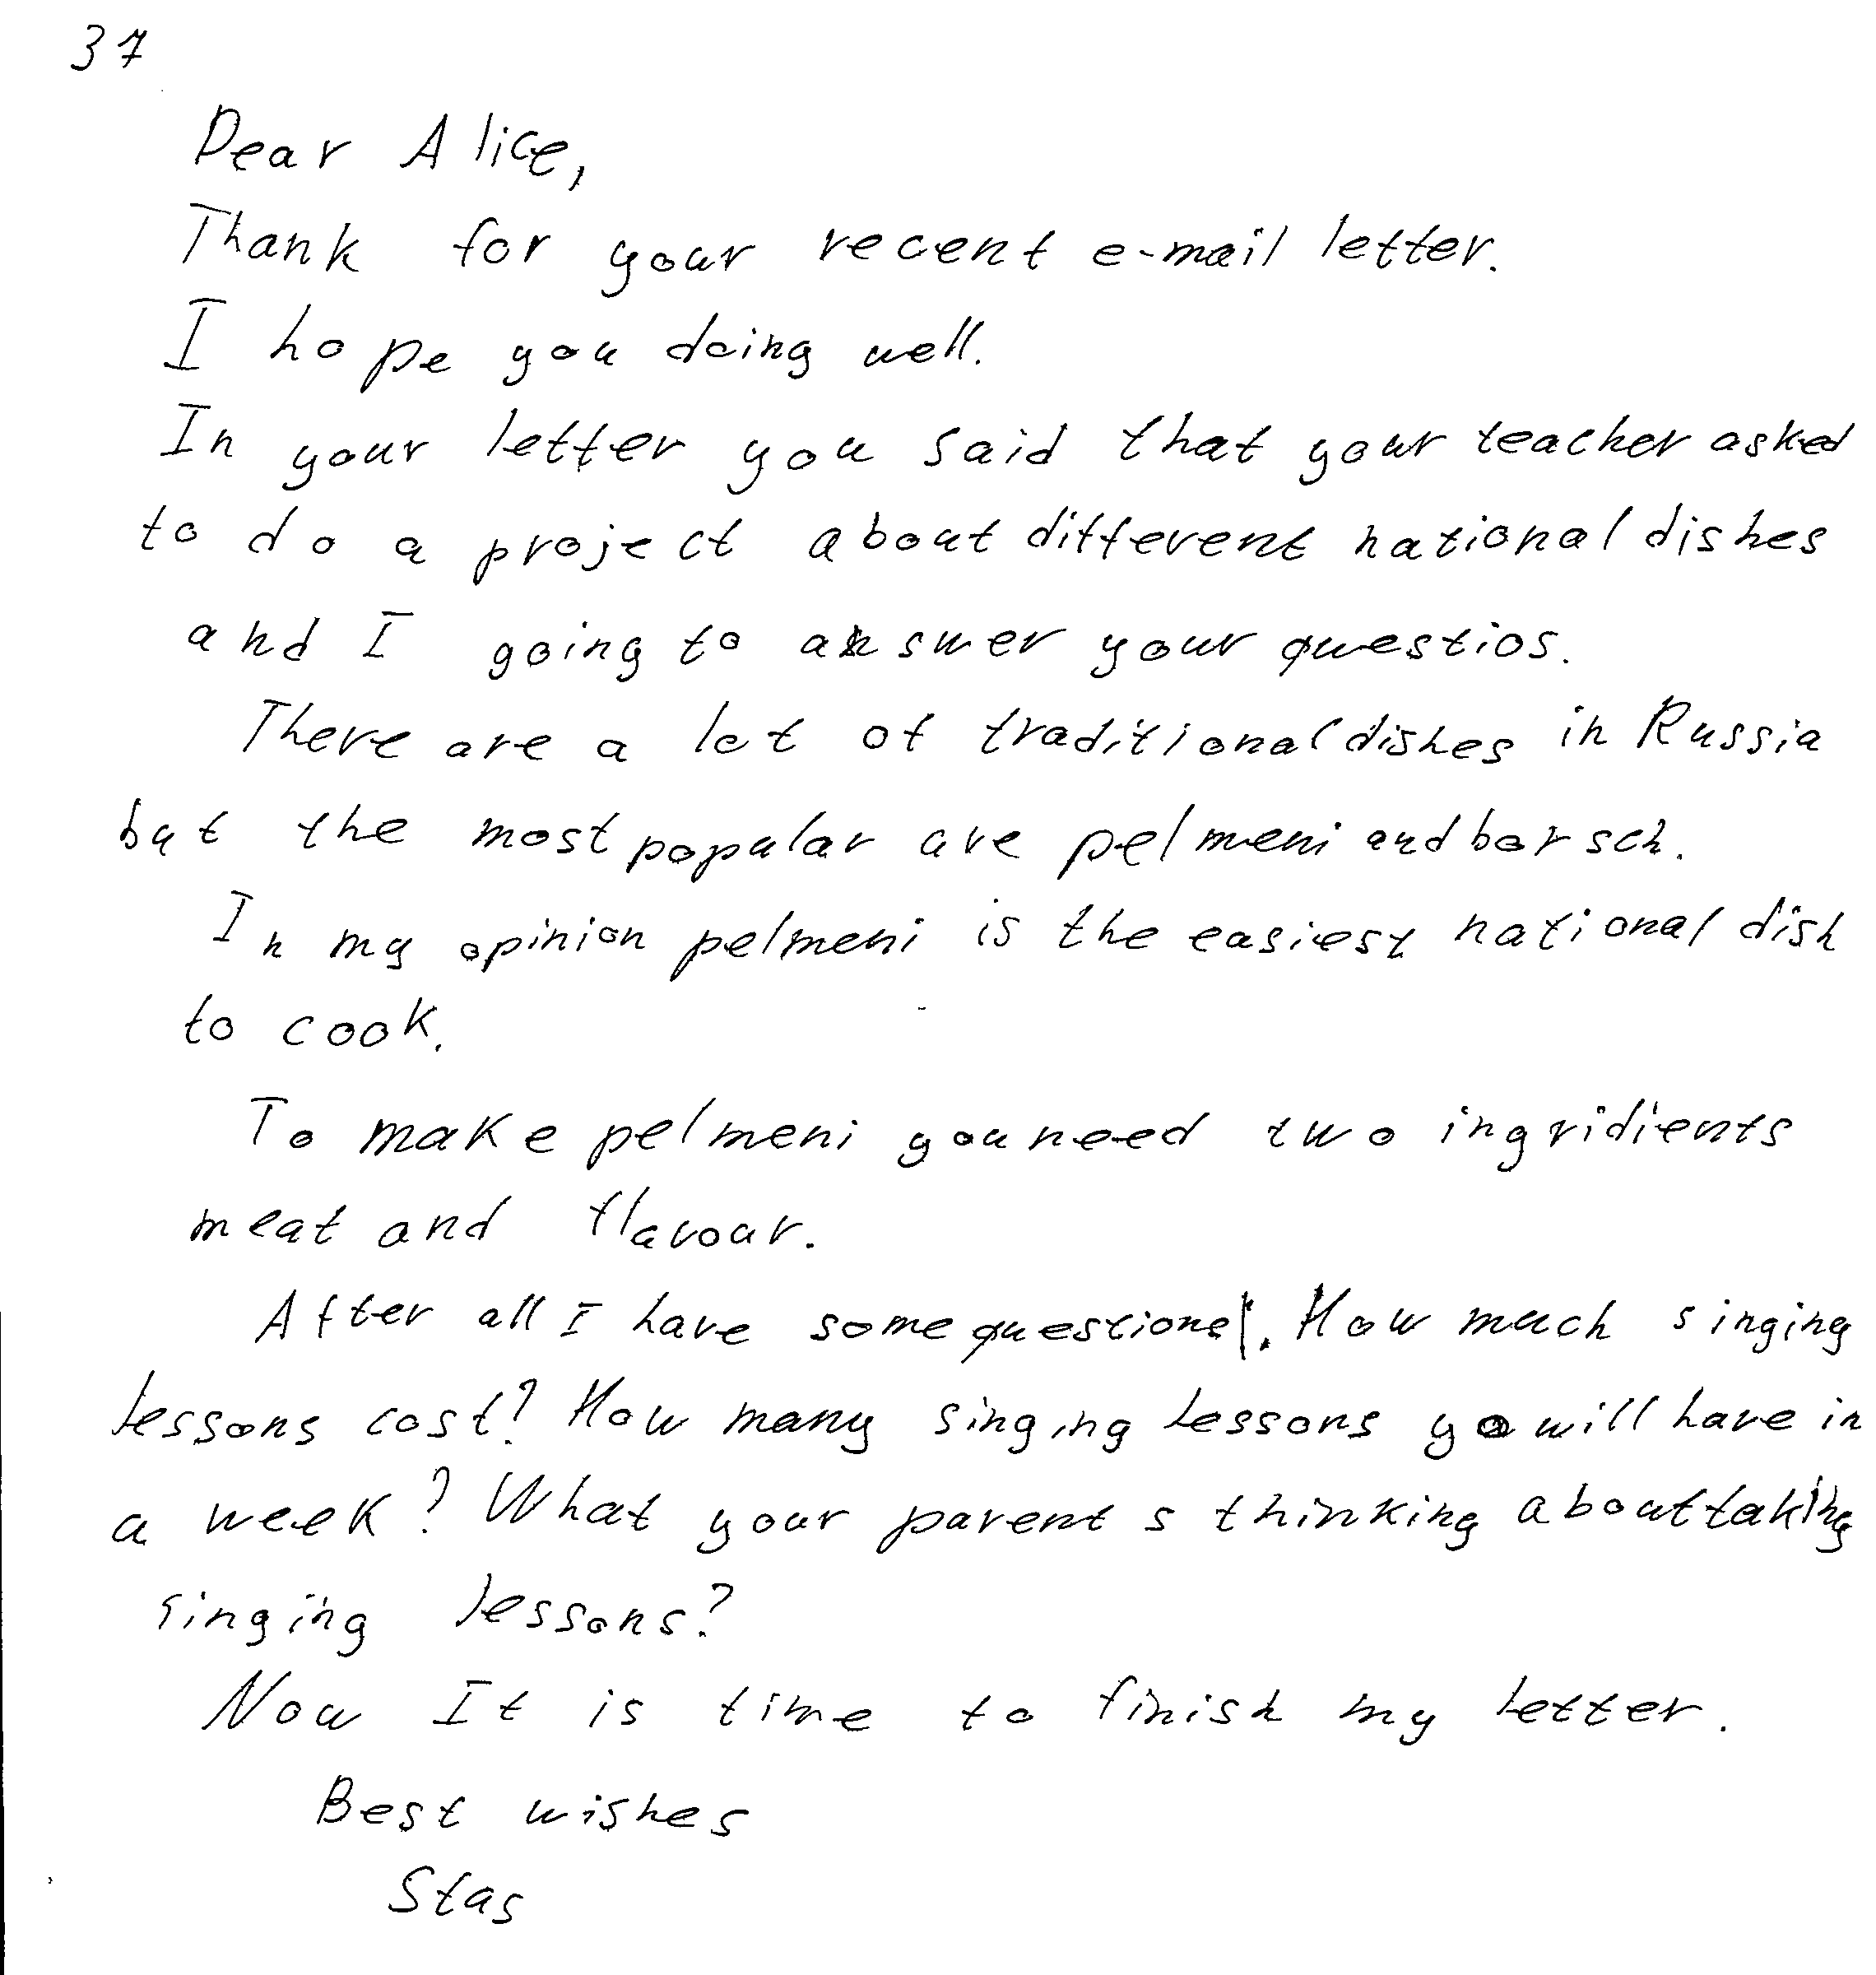 37
Dear Alice,
Thank for your recent e-mail letter.
I hope you doing well.
In your letter you said that your teacher asked
to do a project about different national dishes
and I going to answer your questios.
There are a lot of traditional dishes in Russia
but the most popular are pelmeni and borsch.
In my opinion pelmeni is the easiest national dish
to cook.
To make pelmeni you need two ingridients
meat and flavour.
After all I have some questions. How much singing
lessons cost? How many singing lessons yo will have in
a week? What your parents thinking about taking
singing lessons?
Now It is time to finish my letter.
Best wishes
Stas